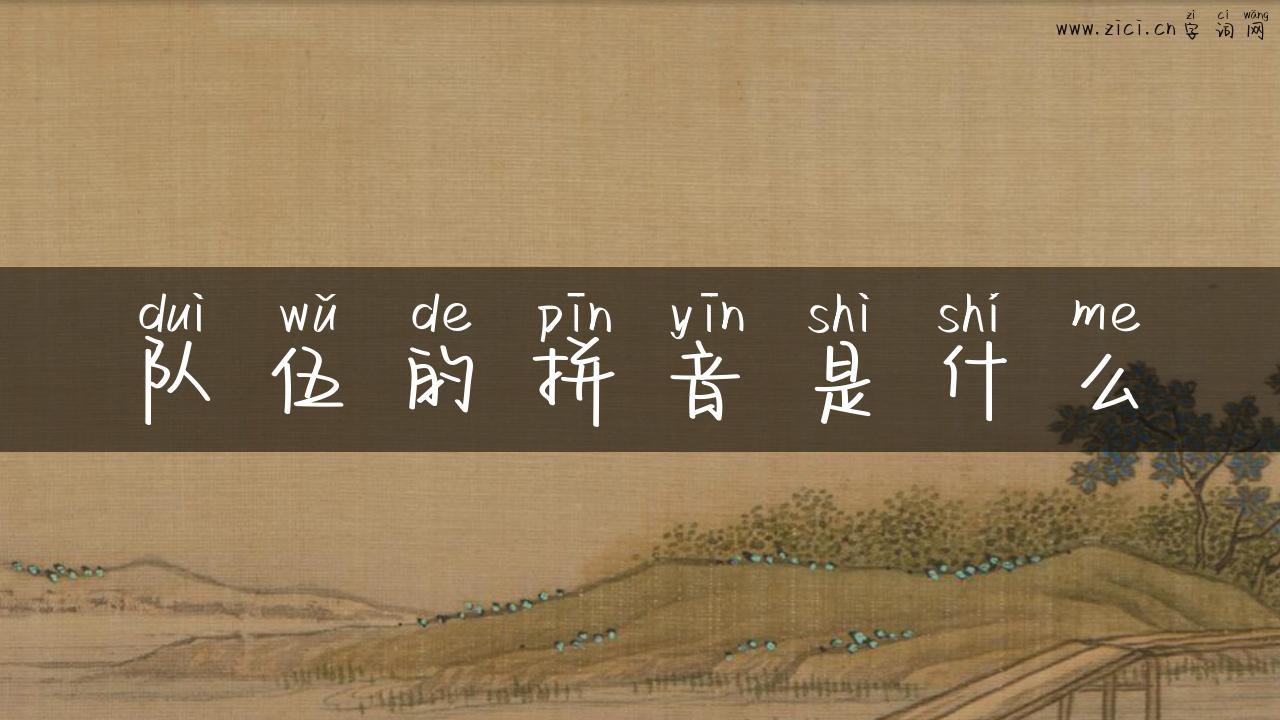 zì cí wǎng
www.zici.cn字词网
duì wǔ de pīn yīn shì shí me
队伍的拼音是什么